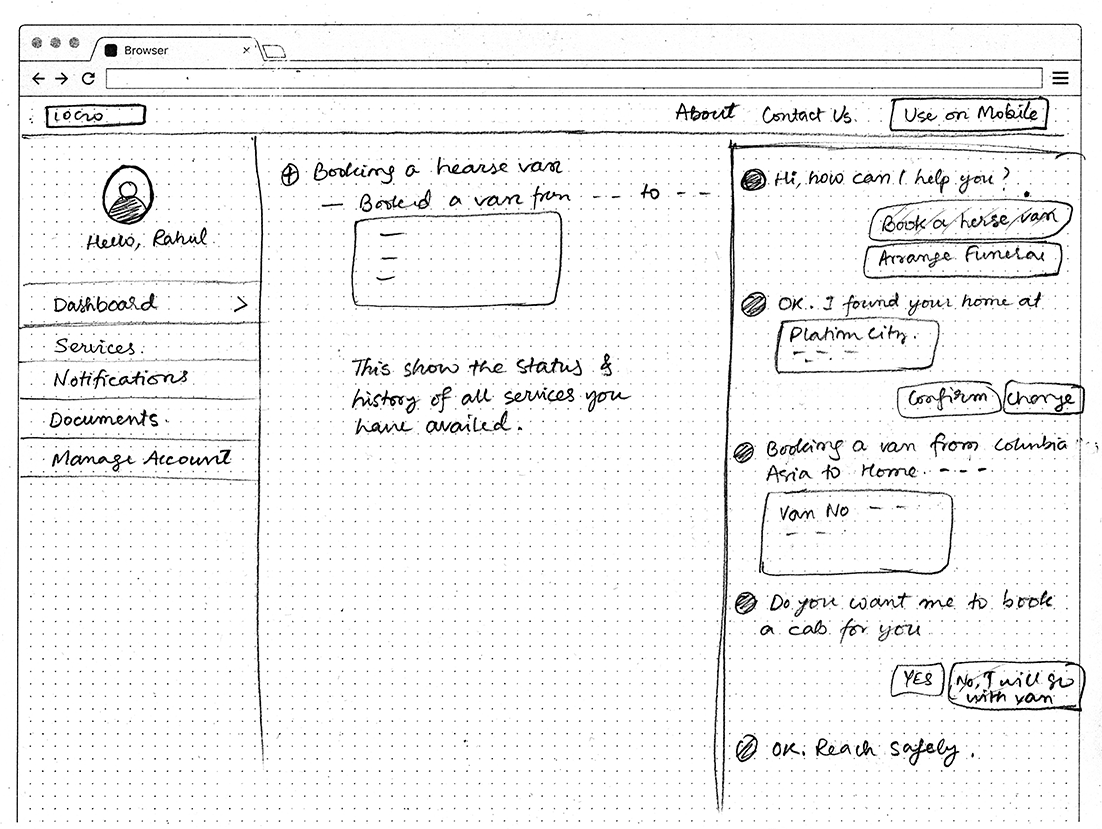 Browser
About
Contact Us.
Use on Mobile
Hello, Rahul.
Dashboard >
Services.
Notifications
Documents.
Manage Account
Booking a hearse van
– Booked a van from -- to --
This show the status &
history of all services you
have availed.
Hi, how can I help you?
Book a herse van
Arrange Funeral
OK. I found your home at
City.
Confirm
Change
Booking a van from Columbia
Asia to Home. ---
Van No --
Do you want me to book
a cab for you
YES
No, I will go
with van
OK. Reach safely.